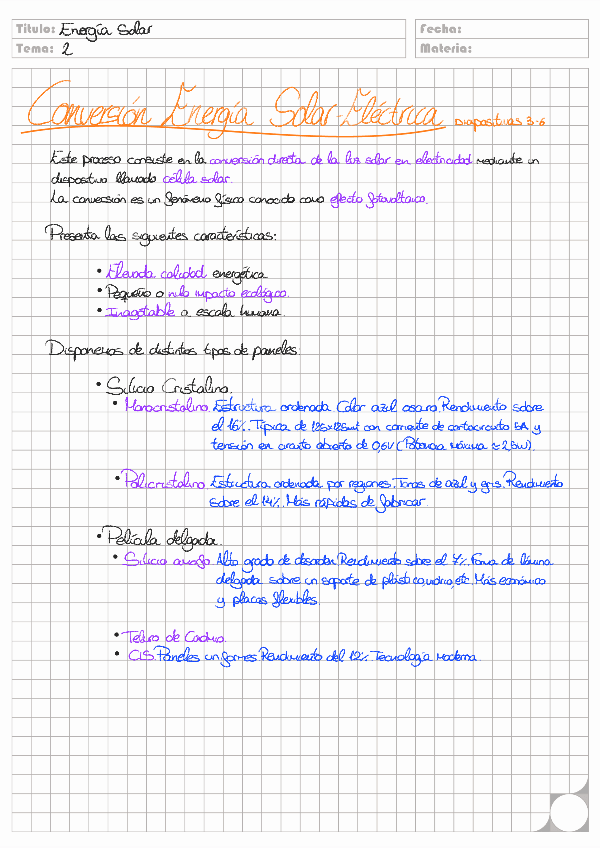 Título: Energía Solar
Fecha:
Tema: 2
Materia:
Conversión Energía Solar-Eléctrica Diapositivas 3-6
Este proceso consiste en la conversión directa de la luz solar en electricidad mediante un
dispositivo llamado célula solar.
La conversión es un fenómeno físico conocido como efecto fotovoltaico.
Presenta las siguientes características:
• Elevada calidad energética
• Pequeño o nulo impacto ecológico.
• Inagotable a escala humana.
Disponemos de distintos tipos de paneles
• Silicio Cristalino.
• Monocristalino. Estructura ordenada. Color azul oscuro. Rendimiento sobre
el 16%. Típica de 125x125mt con corriente de cortocircuito 5A y
tensión en circuito abierto de 0,6V (Potencia máxima ≈ 2,3W).
• Policristalino. Estructura ordenada por regiones. Tonos de azul y gris. Rendimiento
sobre el 14%. Más rápidas de fabricar.
• Película delgada.
• Silicio amorfo. Alto grado de desorden. Rendimiento sobre el 7%. Forma de lámina
delgada sobre un soporte de plástico, vidrio, etc. Más económico
y placas flexibles.
• Teluro de Cadmio.
• CIS. Paneles uniformes Rendimiento del 12%. Tecnología moderna.